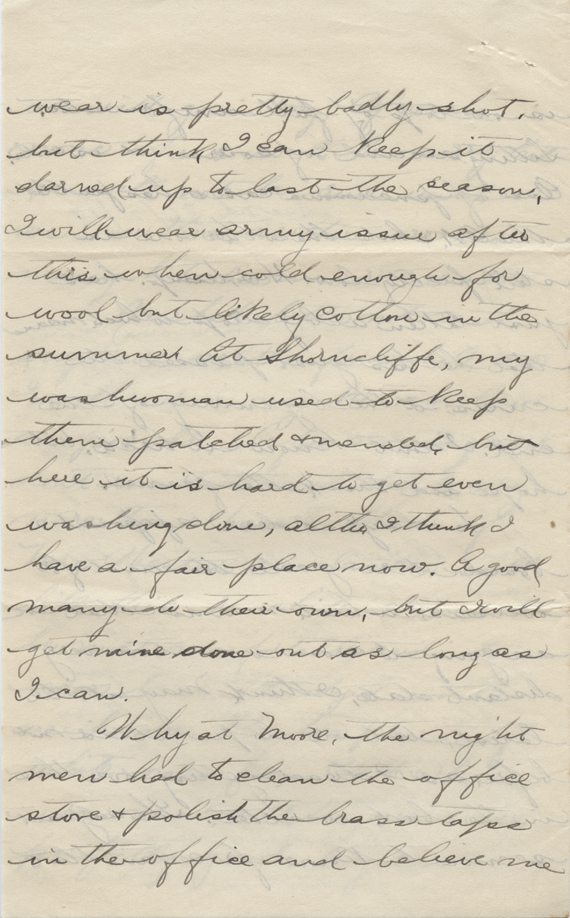 wear is pretty badly shot,
but think I can keep it
darned up to last the season,
I will wear army issue after
this when cold enough for
wool but likely cotton in the
summer. At Shorncliffe, my
washwoman used to keep
them patched & mended, but
here it is hard to get even
washing done, altho I think I
have a fair place now. A good
many do their own, but I will
get mine done out as long as
I can.
Why at Moore, the night
men had to clean the office
stove & polish the brass taps
in the office and believe me